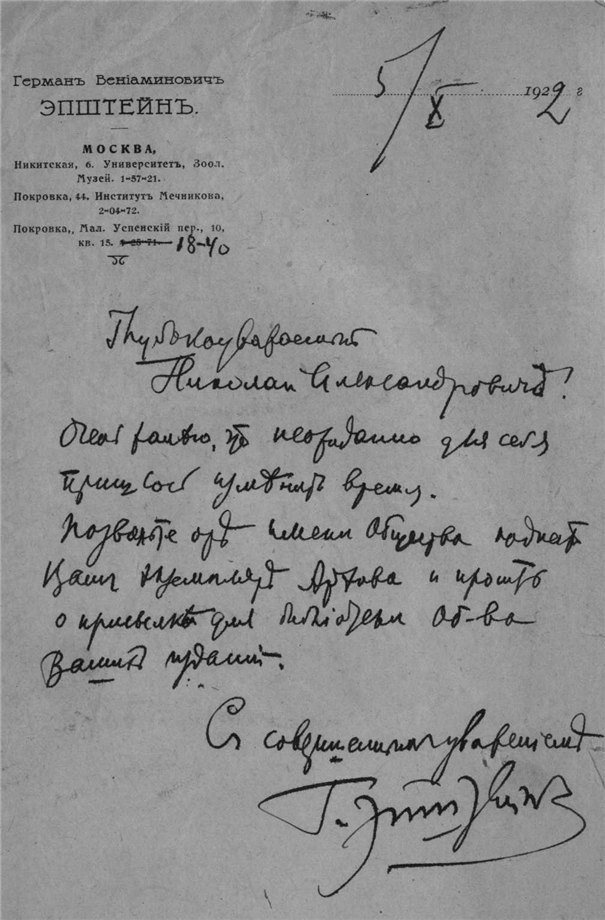 Германъ Веніаминовичъ
ЭПШТЕЙНЪ.
МОСКВА,
Никитская, 6. Университетъ, Зоол.
Музей. 1-57-21.
Покровка, 44. Институтъ Мечникова,
2-04-72.
Покровка, Мал. Успенскій пер., 10,
кв. 15. 18-40
5/X 1922 г
Глубокоуважаемый
Николай Александровичъ!
Очень жалѣю, что неожиданно для себя
пришлось измѣнить время.
Позвольте отъ имени Общества поднести
Вамъ экземпляръ и просить
о присылкѣ для библіотеки Об-ва
Вашихъ изданій.
Съ совершеннымъ уваженіемъ
Г. Эпштейнъ